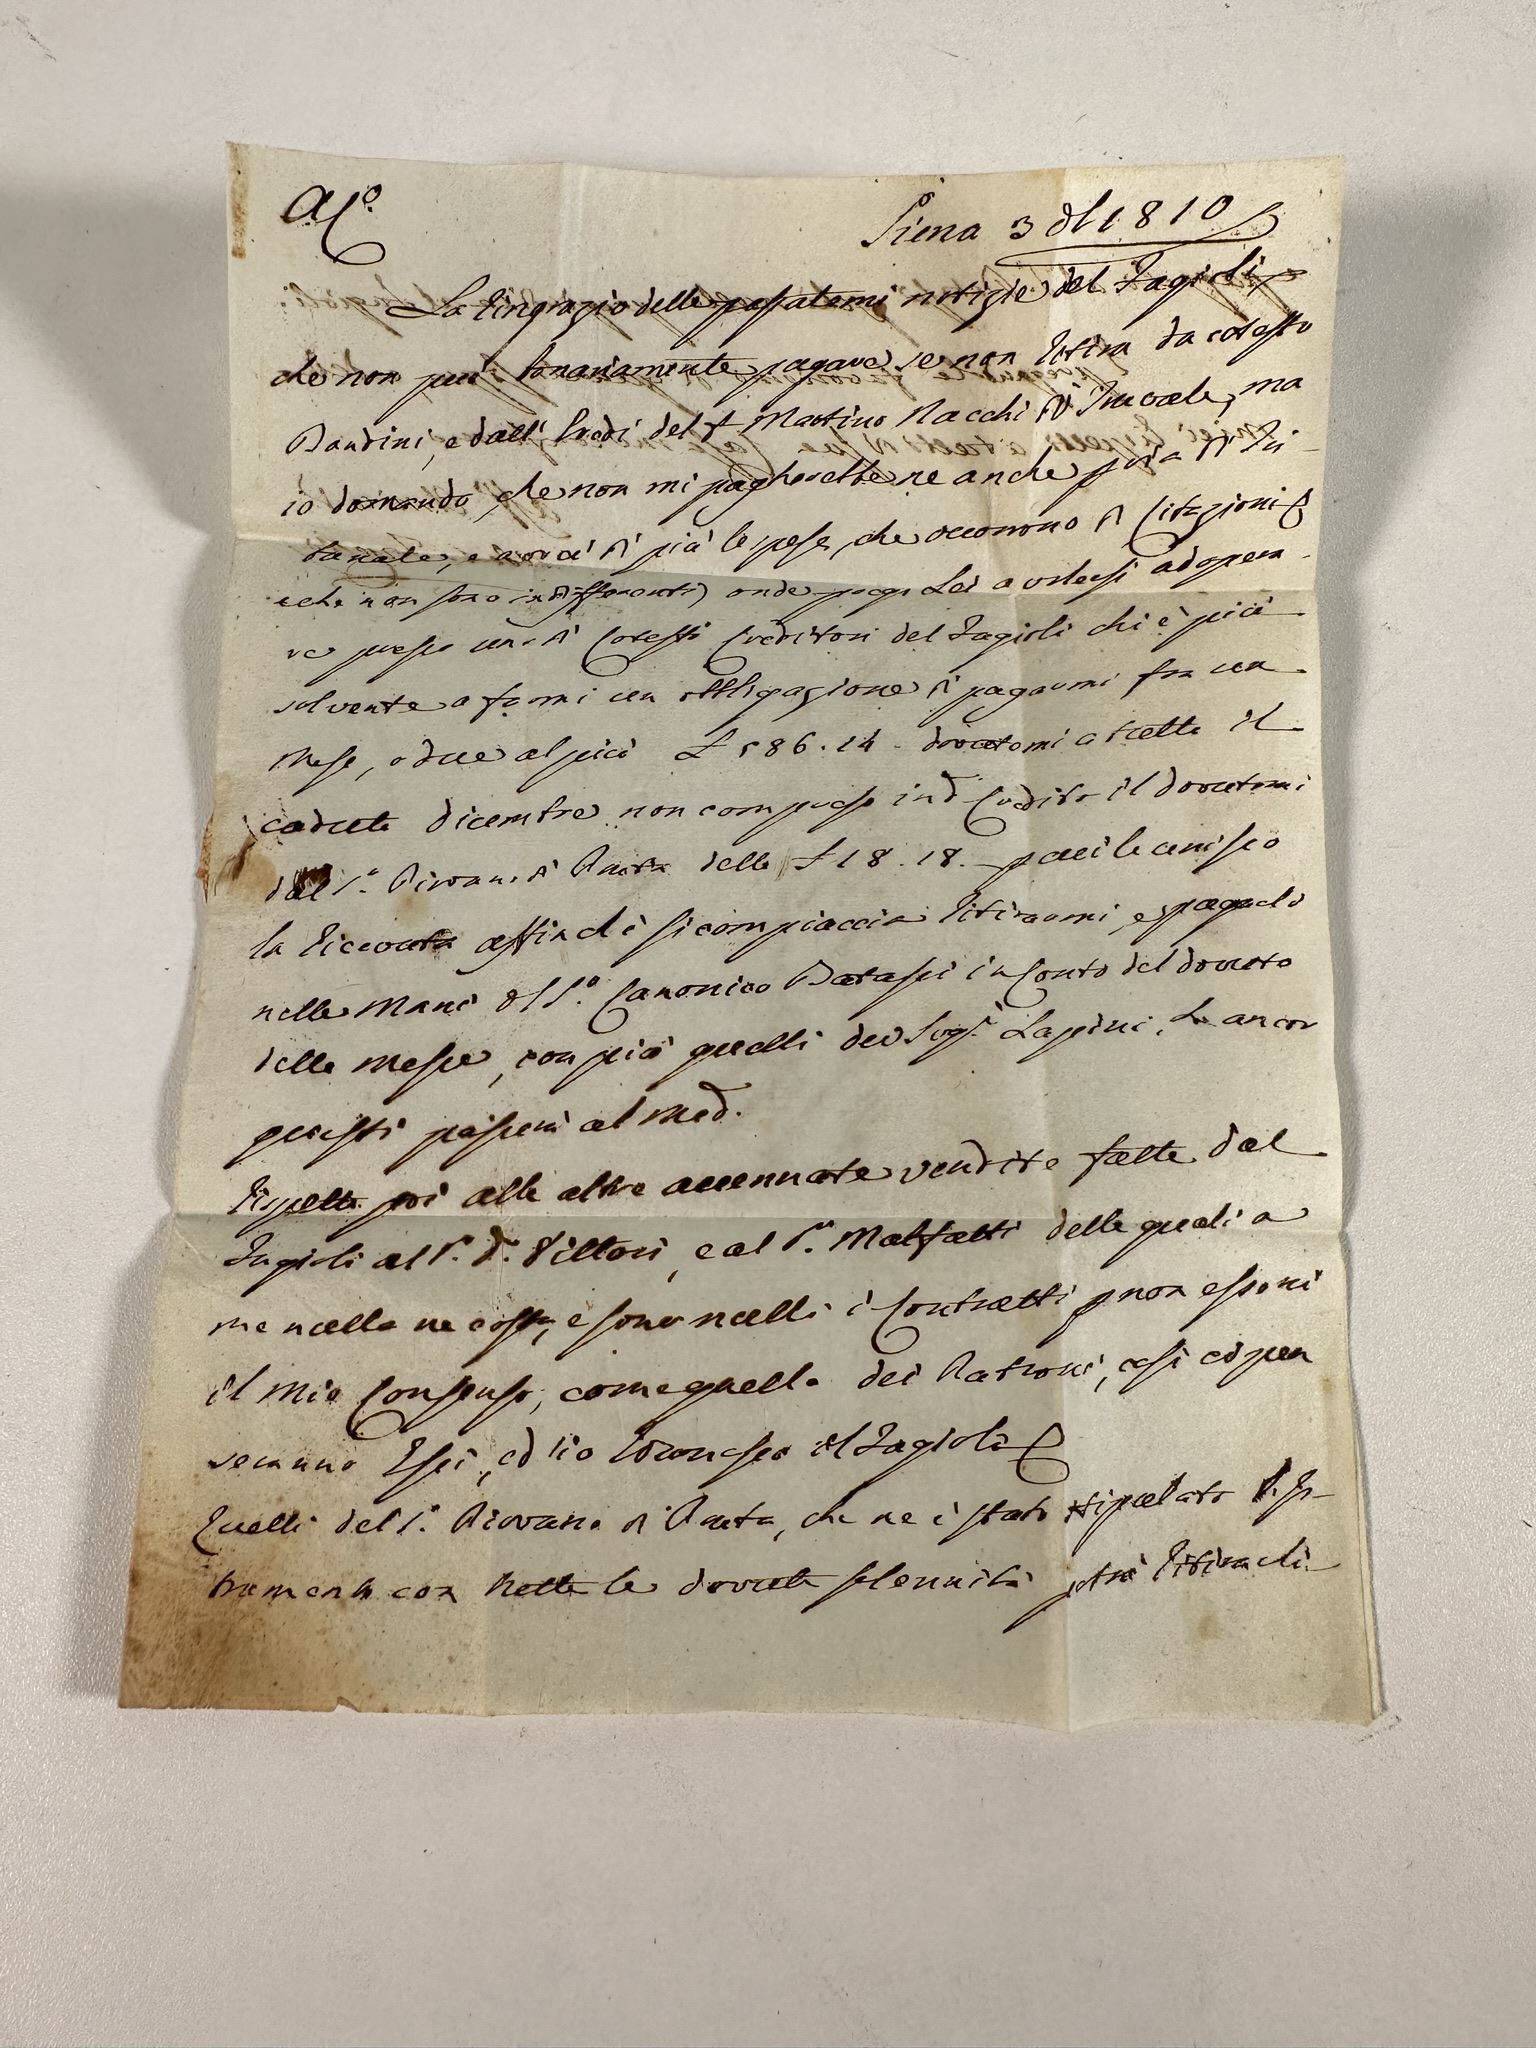 A. C.
Siena 3 del 1810
La ringrazio delle passatemi notizie del Fagioli,
che non può umanamente pagare se non ritira da cotesto
Bandini, e dalli Eredi del Martino Nacchi di, ma
io domando, che non mi pagherebbe ne anche pria di Tri-
bunale, e avrei di più le spese, che occorrono di Citazioni
che non sono indifferenti, onde prego Lei a volersi adopera-
re presso uno di Cotesti Creditori del Fagioli chi è più
solvente a farmi un obbligazione di pagarmi fra un
Mese, o due al più £ 586.14. dovutomi a tutto il
caduto dicembre non compreso in d. Credito il dovutomi
dal S.r Piovano di delle £ 18.18. - per cui le unisco
la ricevuta affinchè si compiaccia ritirarmi, e pagarli
nelle Mani del S.r Canonico Batassi in Conto del dovuto
delle Messe, con più quelli dei Sigg.ri Lapini, che ancor
questi passerà al Med.
Rispetto poi alle altre accennate vendite fatte dal
Fagioli al S.r D.r Vittori, e al S.r Malfatti delle quali a
me nulla ne costa, e sono nulli i Contratti p non esservi
il mio Consenso, come quello dei Padroni, così ci pen
seranno Essi, ed io riconosco il Fagioli
Quelli del S.r Piovano di, che ne è stato stipulato l. Is-
trumento con tutte le dovute solennità potrà ritirarli